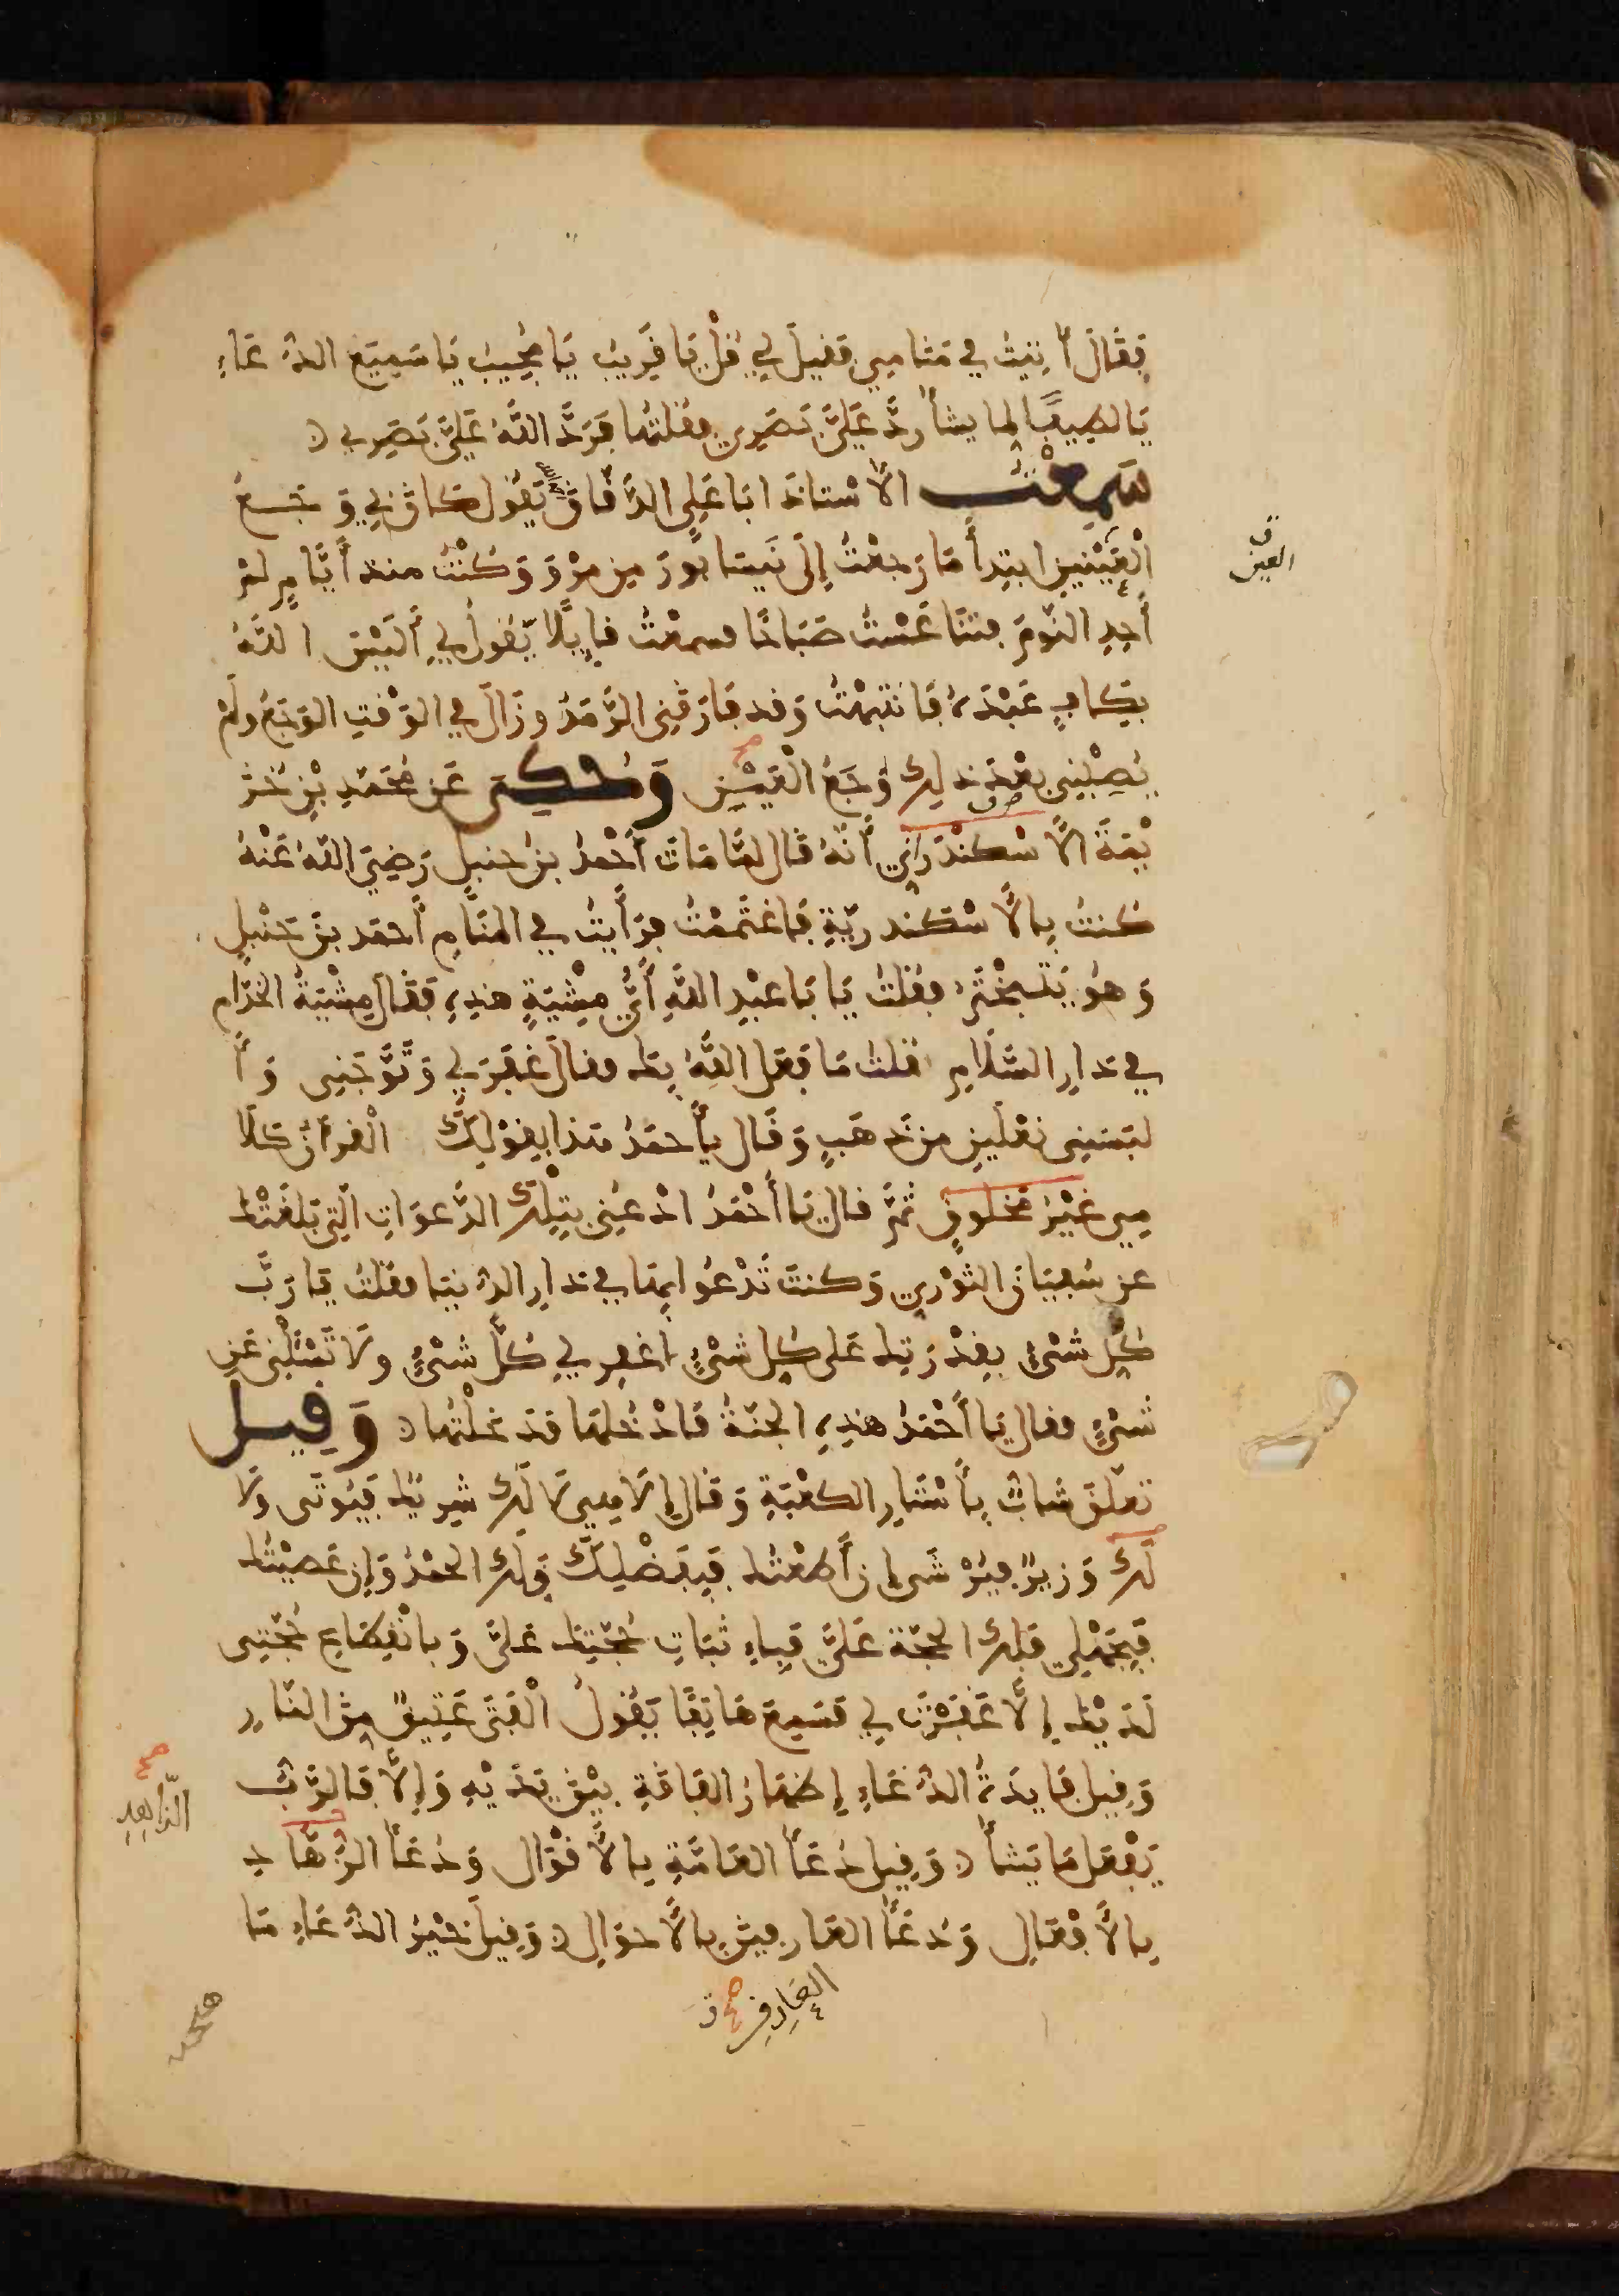 فَقَالَ أُتِيتُ فِي مَنَامِي فَقِيلَ لِي قُلْ يَا قَرِيبُ يَا مُجِيبُ يَا سَمِيعَ الدُّعَاءِ
يَا لَطِيفًا لِمَا يَشَأ رُدَّ عَلَيَّ بَصَرِي فقلتُها فَرَدَّ اللَّهُ عَلَيَّ بَصَرِي
سَمِعْتُ الأسْتَاذَ ابَا عَلِي الدَّقَّاقَ يَقُول كَانَ بِي وَجَعُ
الْعَيْنَيْنِ ابْتِدأَ مَا رَجَعْتُ إِلَى نَيسَابُورَ مِن مَرْوَ وَكُنْتُ منذ أَيَّامٍ لَمْ
أَجِدِ النَّوْمَ فَتَنَاعَسْتُ صَبَاحًا فسمعْتُ قايِلًا يَقُولُ لِي أَلَيْسَ اللَّهُ
بِكَافٍ عَبْدَهُ فَانْتَبَهْتُ وَقد فَارَقَنِي الرَّمَدُ وزَالَ فِي الوَقْتِ الوَجَعُ ولَمْ
يُصِبْنِي بَعْدَ ذلِكَ وَجَعُ الْعَيْنِ وَحُكِيَ عَن مُحَمَّدِ بْنِ خُزَ
يْمَةَ الأسْكَنْدَرَانِي أَنَّهُ قَال لَمَّا مَاتَ أَحْمَدُ بنُ حنبلٍ رَضِيَ اللَّهُ عَنْهُ
كُنتُ بِالأسْكَندريَّةِ فَاغْتَمَمْتُ فَرَأَيتُ فِي المَنَامِ أَحمَد بنَ حَنْبَلٍ
وَهُوَ يَتَبَخْتَرُ فقُلتُ يَا بَا عَبْدِ اللَّهِ أَيُّ مِشْيَةٍ هَذِهِ فَقَال مِشْيَةُ الخُدَّامِ
فِي دَارِ السَّلَامِ قُلتُ مَا فَعَلَ اللَّهُ بِكَ فقالَ غَفَرَ لِي وَتَوَّجَنِي وَأَ
لبَسَنِي نَعْلَيْنِ مِن ذَهَبٍ وَقَال يأَحمَدُ هَذَا بِقَوْلِكَ الْقُرآنُ كَلَا
مِي غَيْرَ مَخلُوقٍ ثُمَّ قَالَ يَا أَحْمَدُ ادْعُنِي بِتِلْكَ الدَّعَوَاتِ الَّتِي بَلَغَتْكَ
عن سُفيَانَ الثَّوْرِي وَكنتَ تَدْعُوا بِهَا فِي دَارِ الدُّنيَا فقُلتُ يَا رَبَّ
كُلِّ شَيْءٍ بِقُدْرَتِكَ عَلَى كُلِ شَيْءٍ اغفِر لِي كُلَّ شَيْءٍ وَلَا تَسْئَلْنِي عَن
شَيْءٍ فقال يَا أَحْمَدُ هَذِهِ الجَنَّةُ فَادْخُلهَا فَدَخَلْتُهَا وَقِيل
تَعلَّقَ شَابٌّ بِأَسْتَارِ الكَعْبَةِ وَقَال إلَاهِي لَا لَكَ شَرِيكٌ فَيُوتَى وَلَا
لَكَ وَزِيرٌ فَيُرْشَى إن أَطَعْتُكَ فَبِفَضْلِكَ وَلَكَ الحَمْدُ وَإن عَصَيْتُكَ
فَبِجَهْلِي فَلَكَ الحُجَّةُ عَلَيَّ فَبِاءِ ثبَاتِ حُجَّتِكَ عَلَيَّ وَبانْقِطَاعِ حُجَّتِي
لَدَيْكَ إلَّا غَفَرْتَ لِي فَسَمِعَ هَاتِفًا يَقُولُ الْفَتَى عَتِيقٌ مِنَ النَّارِ
وَقِيل فَايدَةُ الدُّعَاءِ إظهَارُ الفَاقَةِ بَيْنَ يَدَيْهِ وَإلَّا فَالرَّبُّ
يَفْعَل مَا يَشَأُ وَقِيل دُعَأُ العَامَّةِ بِالأَقْوَال وَدُعَأُ الزُّهَّادِ
بِالأَفْعَالِ وَدُعَأُ العَارِفِينَ بِالأَحوَالِ وَقِيل خَيْرُ الدُّعَاءِ مَا
العين
الزّاهِدِ
العَارِفِ